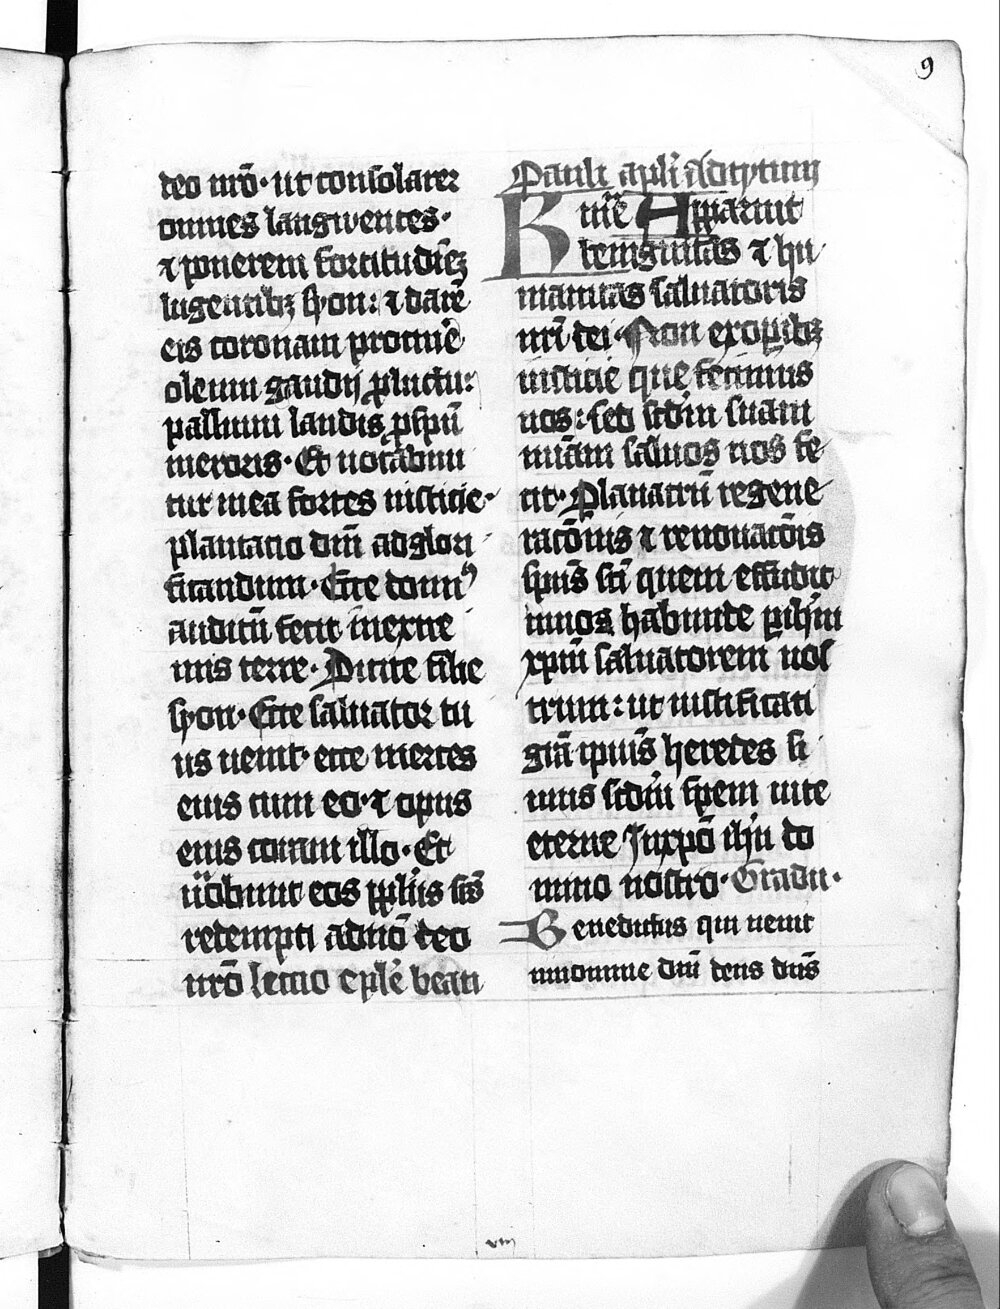 9
deo nr̄o· ut consolarer
omnes langwentes·
⁊ ponerem fortitudīeꝫ
lugentibꝫ syon: ⁊ darē
eis coronam pro cinē̄
oleum gaudij ꝓ luctu:
pallium laudis ꝓ spū
meroris· Et uocabun
tur in ea fortes iusticie·
plantacio dn̄i ad glori
ficandum· Ecce domīꝰ
auditū fecit in extre
mis terre· Dicite filie
syon· Ecce saluator tu
us uenit· ecce merces
eius cum eo· ⁊ opus
eius coram illo· Et
uocabunt eos ppl̄us scs̄
redempti a dn̄o deo
nr̄o lectio epl̄e beati
Pauli apl̄i Ad tytum
Kme Apparuit
benignitas ⁊ hu
manitas saluatoris
nr̄i dei· Non ex opibꝫ
iusticie que fecimus
nos: sed scd̄m suam
mīam saluos nos fe
cit· P lauacrū regene
racōnis ⁊ renouacōis
spūs scī quem effudit
in nos habunde p ih̄m
xpm̄ saluatorem nos
trum: ut iustificati
grā ipius̄ heredes si
mus scd̄m spem uite
eterne In xpō ih̄u do
mino nostro· Gradu·
Benedictus qui uenit
in nomine dn̄i deus dn̄s
viij